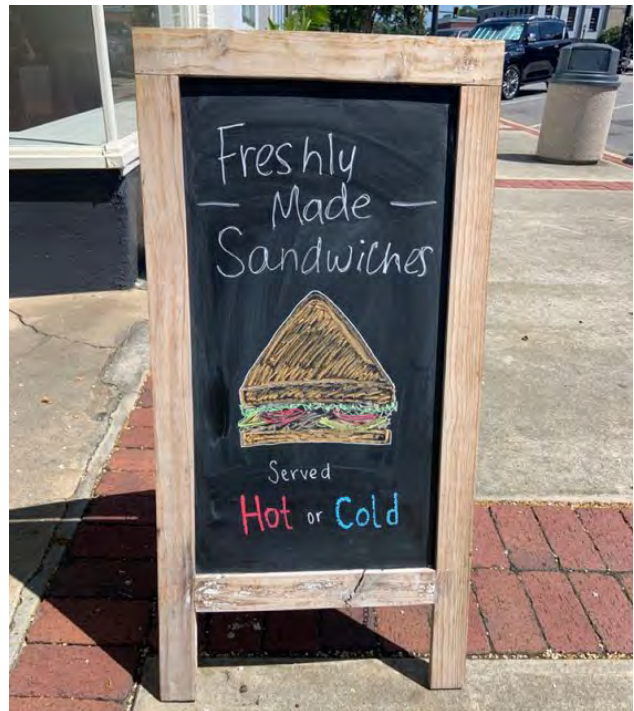 Freshly
Made
Sandwiches
Served
Hot or Cold